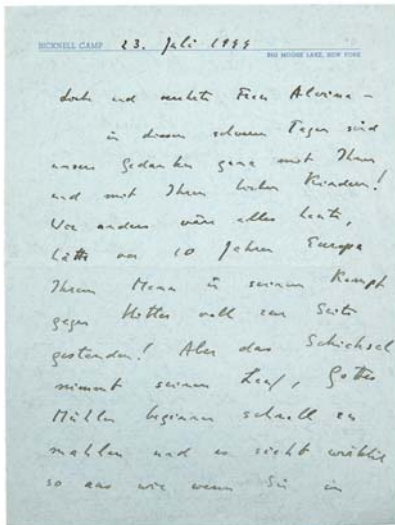 BICKNELL CAMP 23. Juli 1944
BIG MOOSE LAKE, NEW YORK
und Frau Alwine –
in diesen schweren Tagen sind
unsere Gedanken ganz mit Ihnen
und mit Ihren lieben Kindern!
Wie anders wäre alles heute,
hätte vor 10 Jahren Europa
Ihrem Mann in seinem Kampf
gegen Hitler voll zur Seite
gestanden! Aber das Schicksal
nimmt seinen Lauf, Gottes
Mühlen beginnen schnell zu
mahlen und es sieht wirklich
so aus wie wenn Sie in